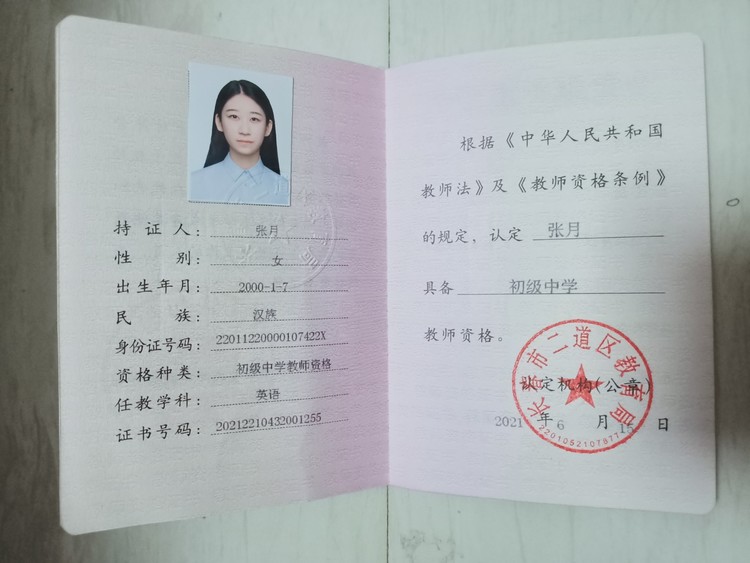 持证人：张月
性别：女
出生年月：2000-1-7
民族：汉族
身份证号码：22011220000107422X
资格种类：初级中学教师资格
任教学科：英语
证书号码：20212210432001255
根据《中华人民共和国
教师法》及《教师资格条例》
的规定，认定 张月
具备 初级中学
教师资格。
长春市二道区教育局
认定机构(公章)
2021年6月15日